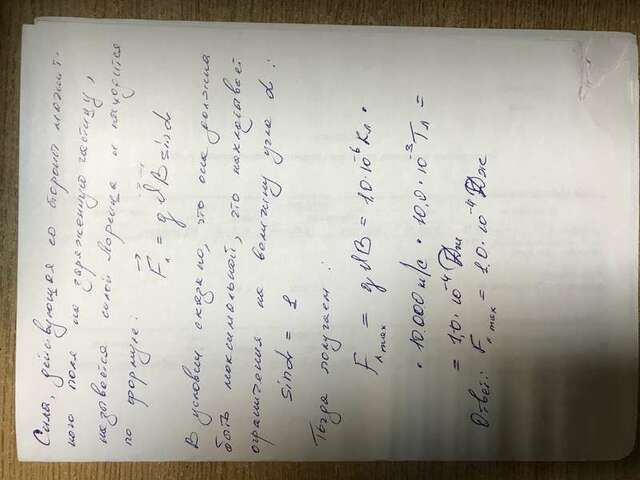 Сила, действующая со стороны магнит-
ного поля на заряженную частицу,
называется силой Лоренца и находится
по формуле:
F⃗л = qϑ⃗B⃗sinα
В условии сказано, что она должна
быть максимальной, это накладывает
ограничения на величину угла α:
sinα = 1
Тогда получаем:
Fл max = qϑB = 1.0·10⁻⁶ Кл ·
· 10.000 м/с · 10,0·10⁻³ Тл =
= 1,0·10⁻⁴ Дж
Ответ: Fл max = 1,0·10⁻⁴ Дж